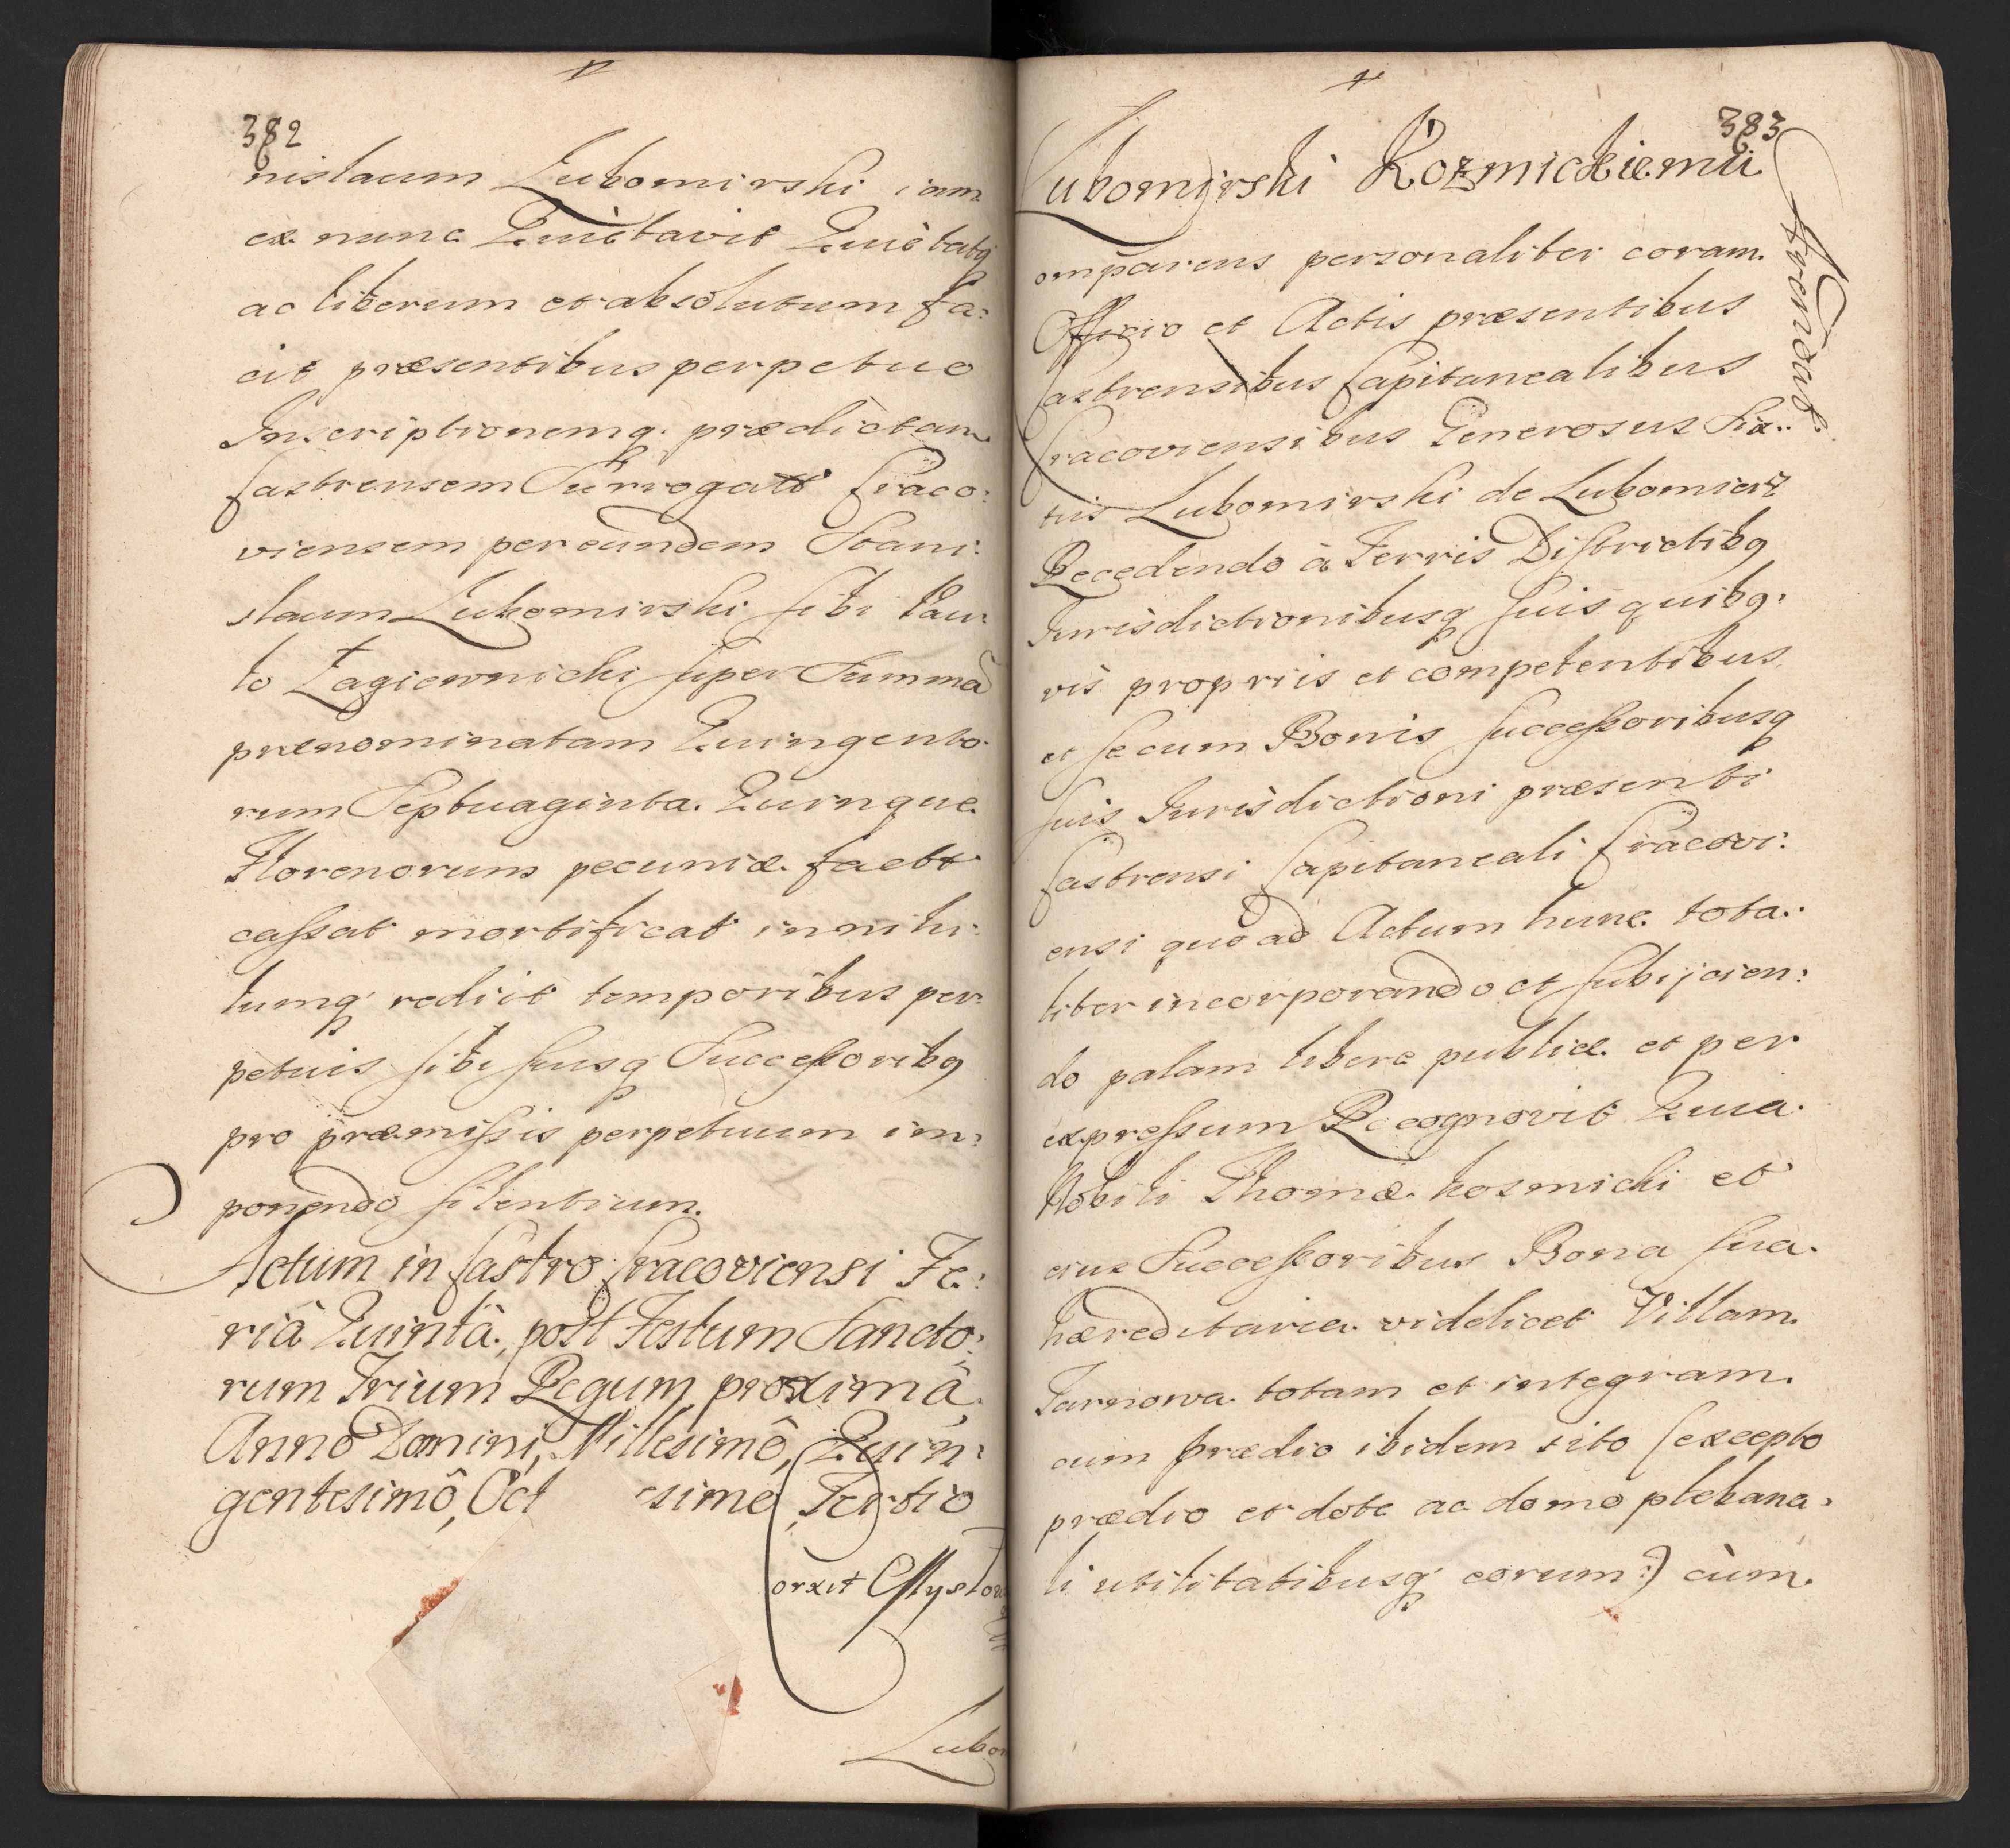 382
nislaum Lubomirski iam
ex nunc Quietavit Quietatq
ac liberum et absolutum fa:
cit præsentibus perpetuo
Inscriptionemq. prædictam
Castrensem Surrogatt Craco:
viensem per eundem Stani:
slaum Lubomirski sibi Pau:
lo Łagiewnicki super Summa
prænominatam Quingento
rum Septuaginta. Quinque
Florenorum pecuniæ. factt
cassat mortificat in nihi:
lumq redicit temporibus per:
petuis sibi suisq Successoribq
pro præmissis perpetuum im:
ponendo silentium.
Actum in Castro Cracoviensi Fe:
riâ Quintâ, post Festum Sancto:
rum Trium Regum proximâ
Anno Domini, Millesimô, Quin:
gentesimô, Oct esimo Tertio
383
Lubomirski Kozmickiemu
omparens personaliter coram.
Officio et Actis præsentibus
Castrensibus Capitanealibus
Cracoviensibus Generosus Six:
tus Lubomirski de Lubomierz
Recedendo à Terris Districtibq
Jurisdictionibusq suis quibq.
vis propriis et competentibus
et se cum Bonis successoribusq
suis Jurisdictioni præsenti
Castrensi Capitaneali Cracovi:
ensi quo ad Actum hunc tota:
liter incorporando et subijcien:
do palam libere publice et per
expressum Recognovit Quia.
Nobili Thomæ kosmicki et
eius Successoribus Bona sua.
hæreditaria videlicet Villam.
Tarnowa totam et integram.
cum prædio ibidem sito (excepto
prædio et dote ac domo plebana:
li utilitatibusq eorum:) cùm.